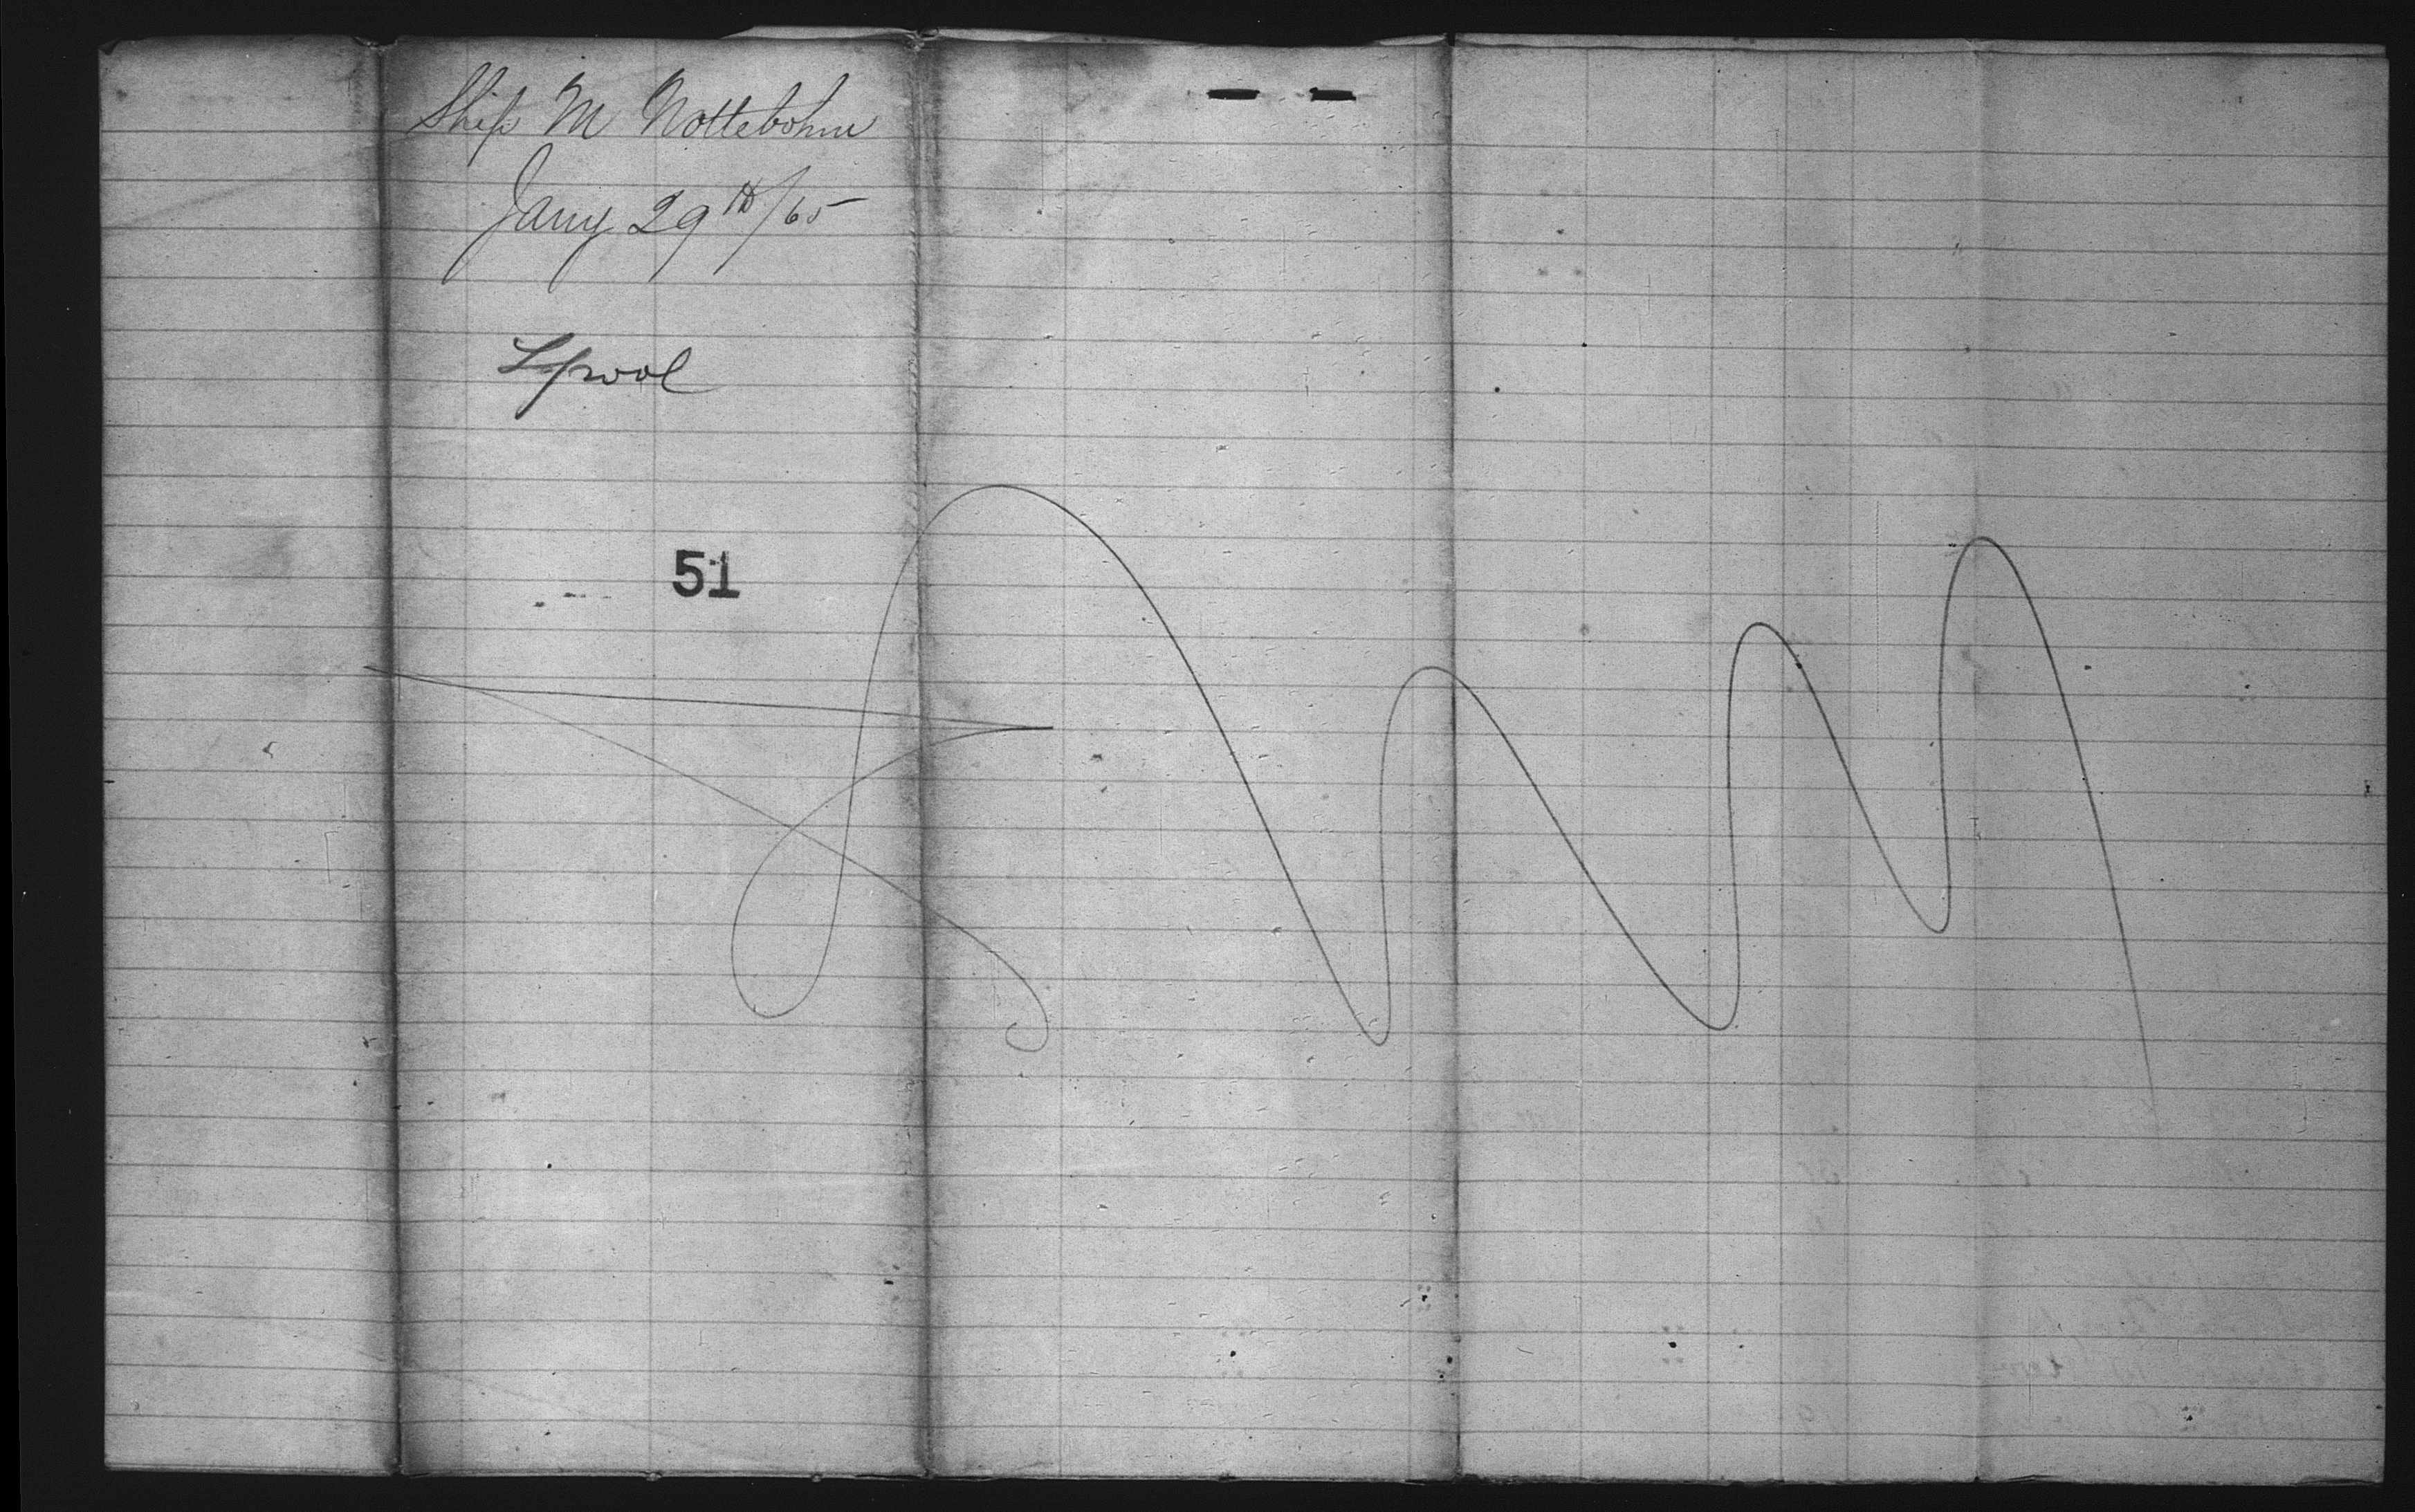 Ship M Nottebohm
Jany 29th/65
Lpool
51